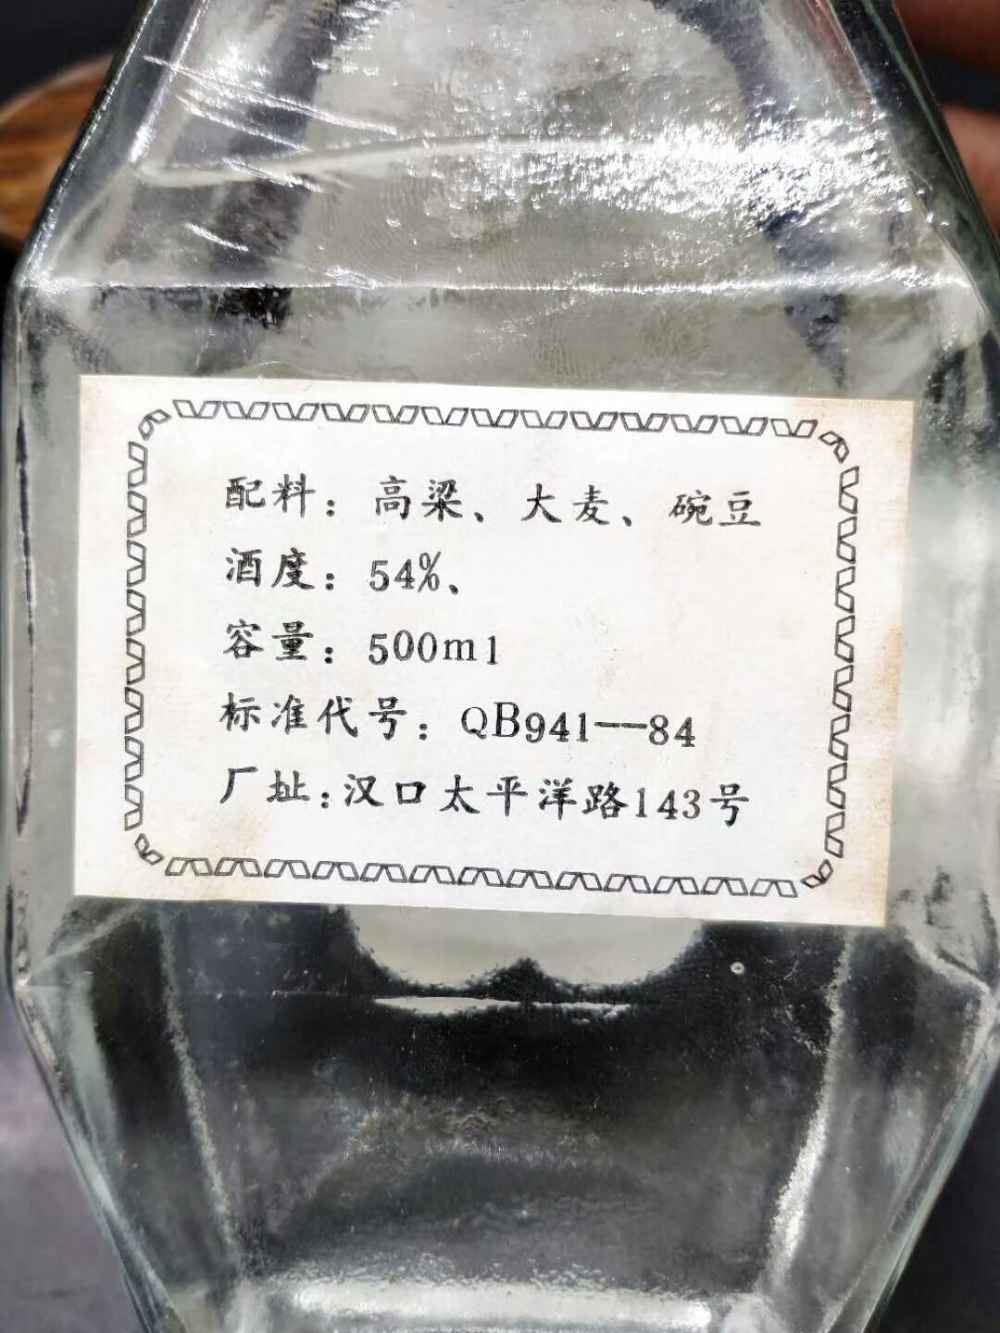 配料：高梁、大麦、碗豆
酒度：54%、
容量：500ml
标准代号：QB941—84
厂址：汉口太平洋路143号